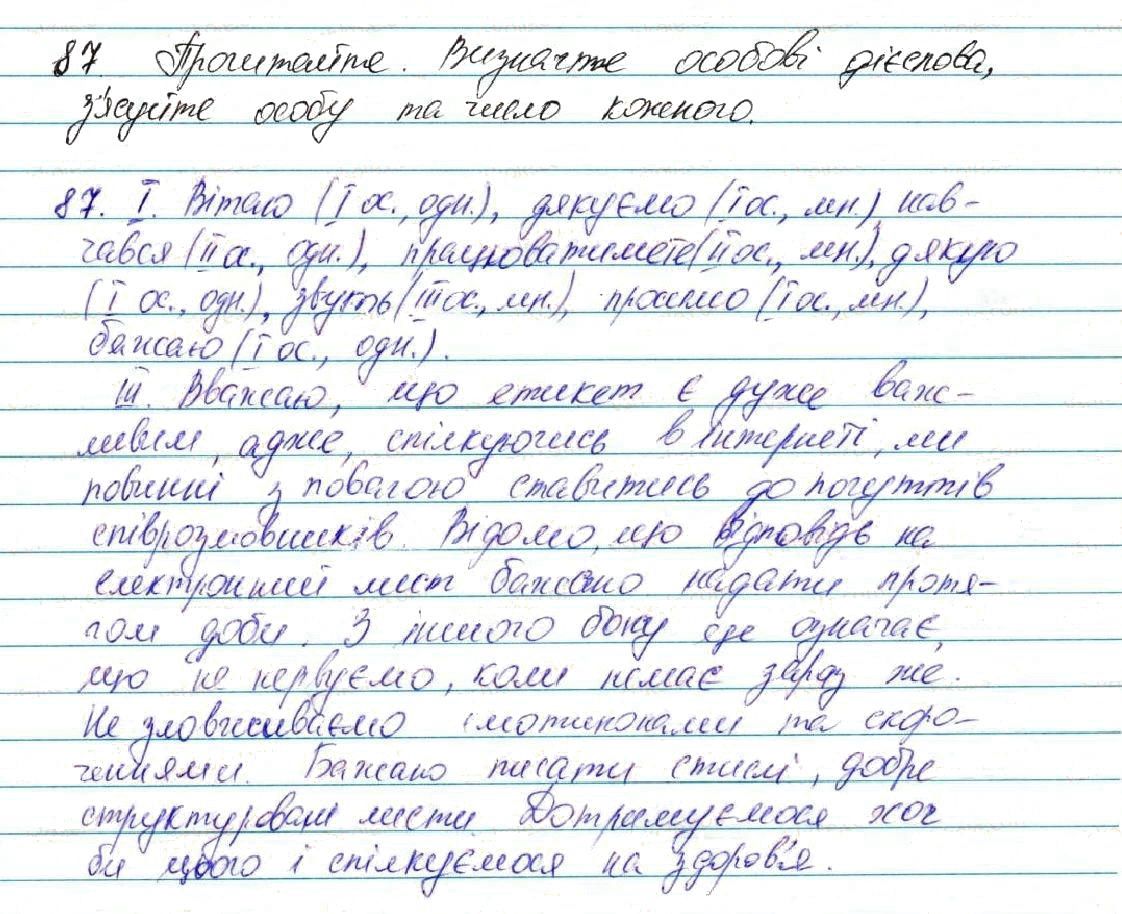 87 Прочитайте. Визначте особові дієслова,
з'ясуйте особу та число кожного.
87. І. Вітаю (І ос., одн.), дякуємо (І ос., мн.), нав-
чався (ІІ ос., одн.), працюватимете (ІІ ос., мн.), дякую
(І ос., одн.), звуть (ІІІ ос., мн.), просимо (І ос., мн.),
бажаю (І ос., одн.).
ІІІ. Вважаю, що етикет є дуже важ-
ливим, адже, спілкуючись в інтернеті, ми
повинні з повагою ставитись до почуттів
співрозмовників. Відомо, що відповідь на
електронний лист бажано надати протя-
гом доби. З іншого боку це означає,
що не нервуємо, коли немає зараз же.
Не зловживаємо смотиконами та скоро-
ченнями. Бажано писати стислі, добре
структуровані листи. Дотримуємося хоч
би цього і спілкуємося на здоров'я.